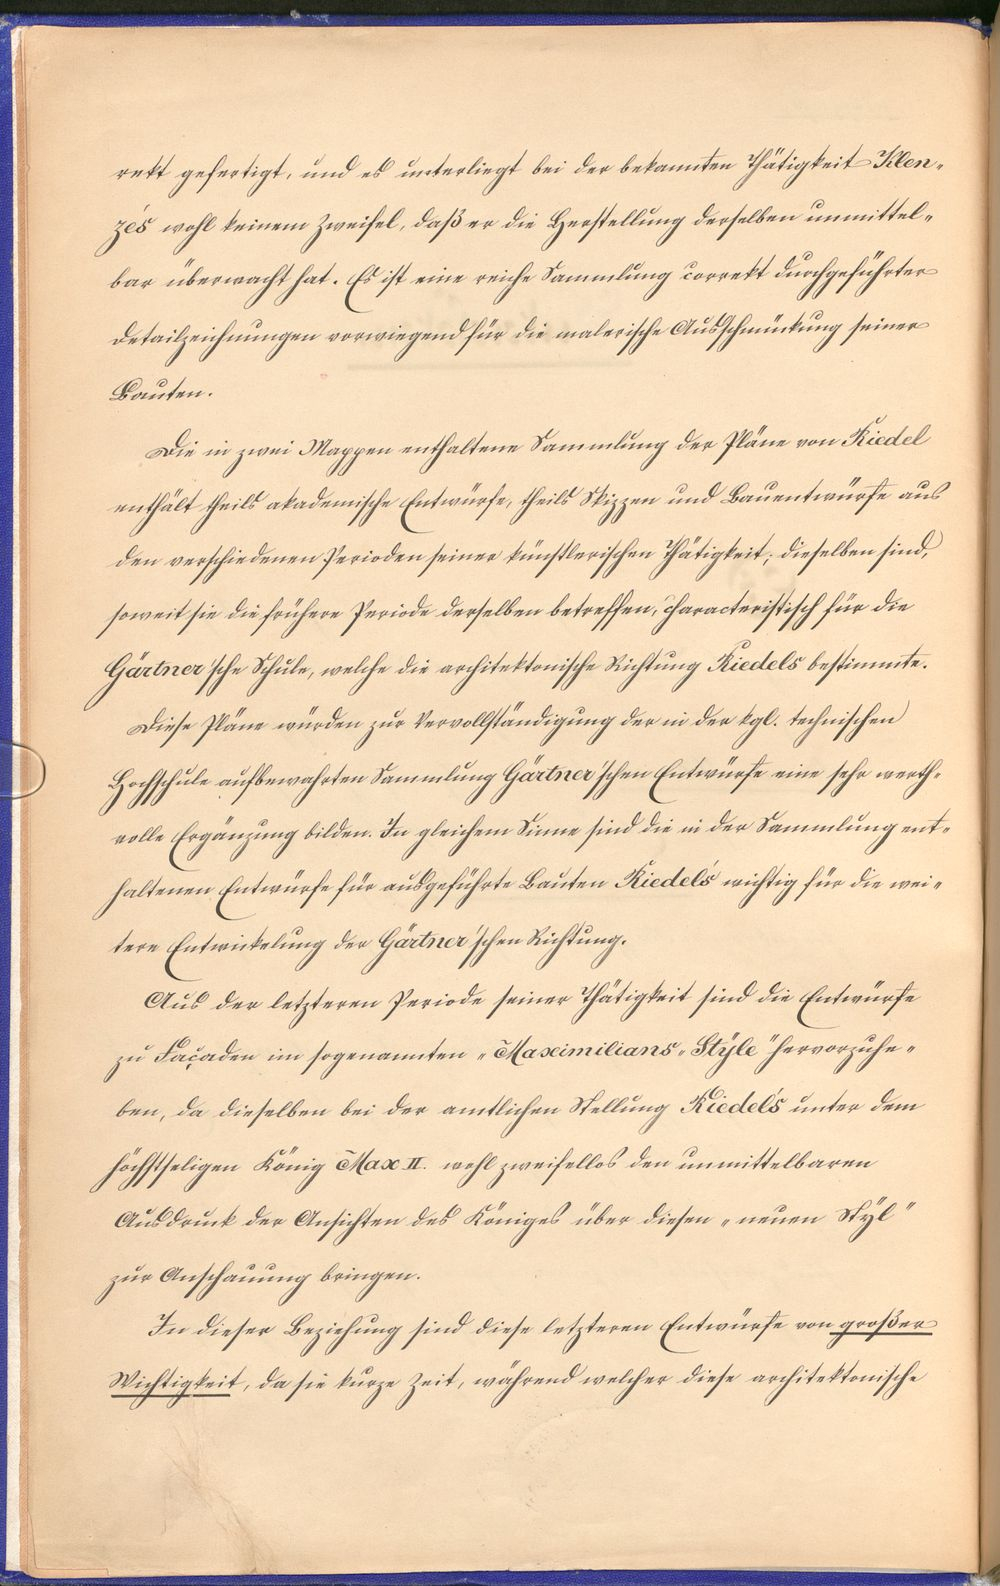 rekt gefertigt, und es unterliegt bei der bekannten Thätigkeit Klen-
ze's wohl keinem Zweifel, daß er die Herstellung derselben unmittel-
bar überwacht hat. Es ist eine reiche Sammlung correkt durchgeführter
Detailzeichnungen vorwiegend für die malerische Ausschmückung seiner
Bauten.
Die in zwei Mappen enthaltene Sammlung der Pläne von Riedel
enthält theils akademische Entwürfe, theils Skizzen und Bauentwürfe aus
den verschiedenen Perioden seiner künstlerischen Thätigkeit; dieselben sind,
soweit sie die frühere Periode derselben betreffen, characteristisch für die
Gärtner'sche Schule, welche die architektonische Richtung Riedels bestimmte.
Diese Pläne würden zur Vervollständigung der in der kgl. technischen
Hochschule aufbewahrten Sammlung Gärtner'schen Entwürfe eine sehr werth-
volle Ergänzung bilden. In gleichem Sinne sind die in der Sammlung ent-
haltenen Entwürfe für ausgeführte Bauten Riedel's wichtig für die wei-
tere Entwickelung der Gärtner'schen Richtung.
Aus der letzteren Periode seiner Thätigkeit sind die Entwürfe
zu Façaden im sogenannten „Maximilians-Style" hervorzuhe-
ben, da dieselben bei der amtlichen Stellung Riedel's unter dem
höchstseligen König Max II. wohl zweifellos den unmittelbaren
Ausdruck der Ansichten des Königes über diesen „neuen Styl"
zur Anschauung bringen.
In dieser Beziehung sind diese letzteren Entwürfe von großer
Wichtigkeit, da sie kurze Zeit, während welcher diese architektonische